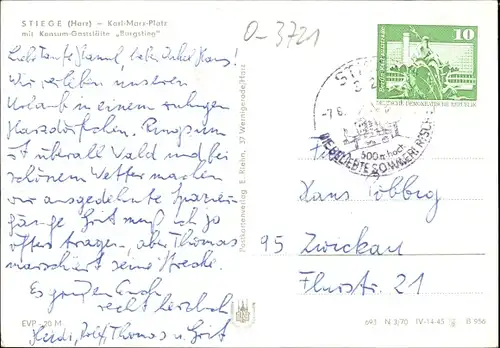 STIEGE (Harz) – Karl-Marx-Platz
mit Konsum-Gaststätte „Burgstieg"
O-3721
Liebe Tante Hannel, lieber Onkel Hans!
Wir verleben unseren
Urlaub in einem ruhigen
Harzdörfchen. Ringsum
ist überall Wald und bei
schönem Wetter machen
wir ausgedehnte Spazier-
gänge. Grit muß ich ja
öfter tragen, aber Thomas
marschiert seine Strecke.
Es grüßen Euch
recht herzlich
Heidi, Rolf, Thomas u. Grit
EVP –,20 M
Postkartenverlag E. Riehn, 37 Wernigerode/Harz
10
DEUTSCHE DEMOKRATISCHE REPUBLIK
500 m hoch
DIE BELIEBTE SOMMERFRISCHE
Hans Lobbig
95 Zwickau
Flurstr. 21
693 N 3/70 IV-14-45 B 956